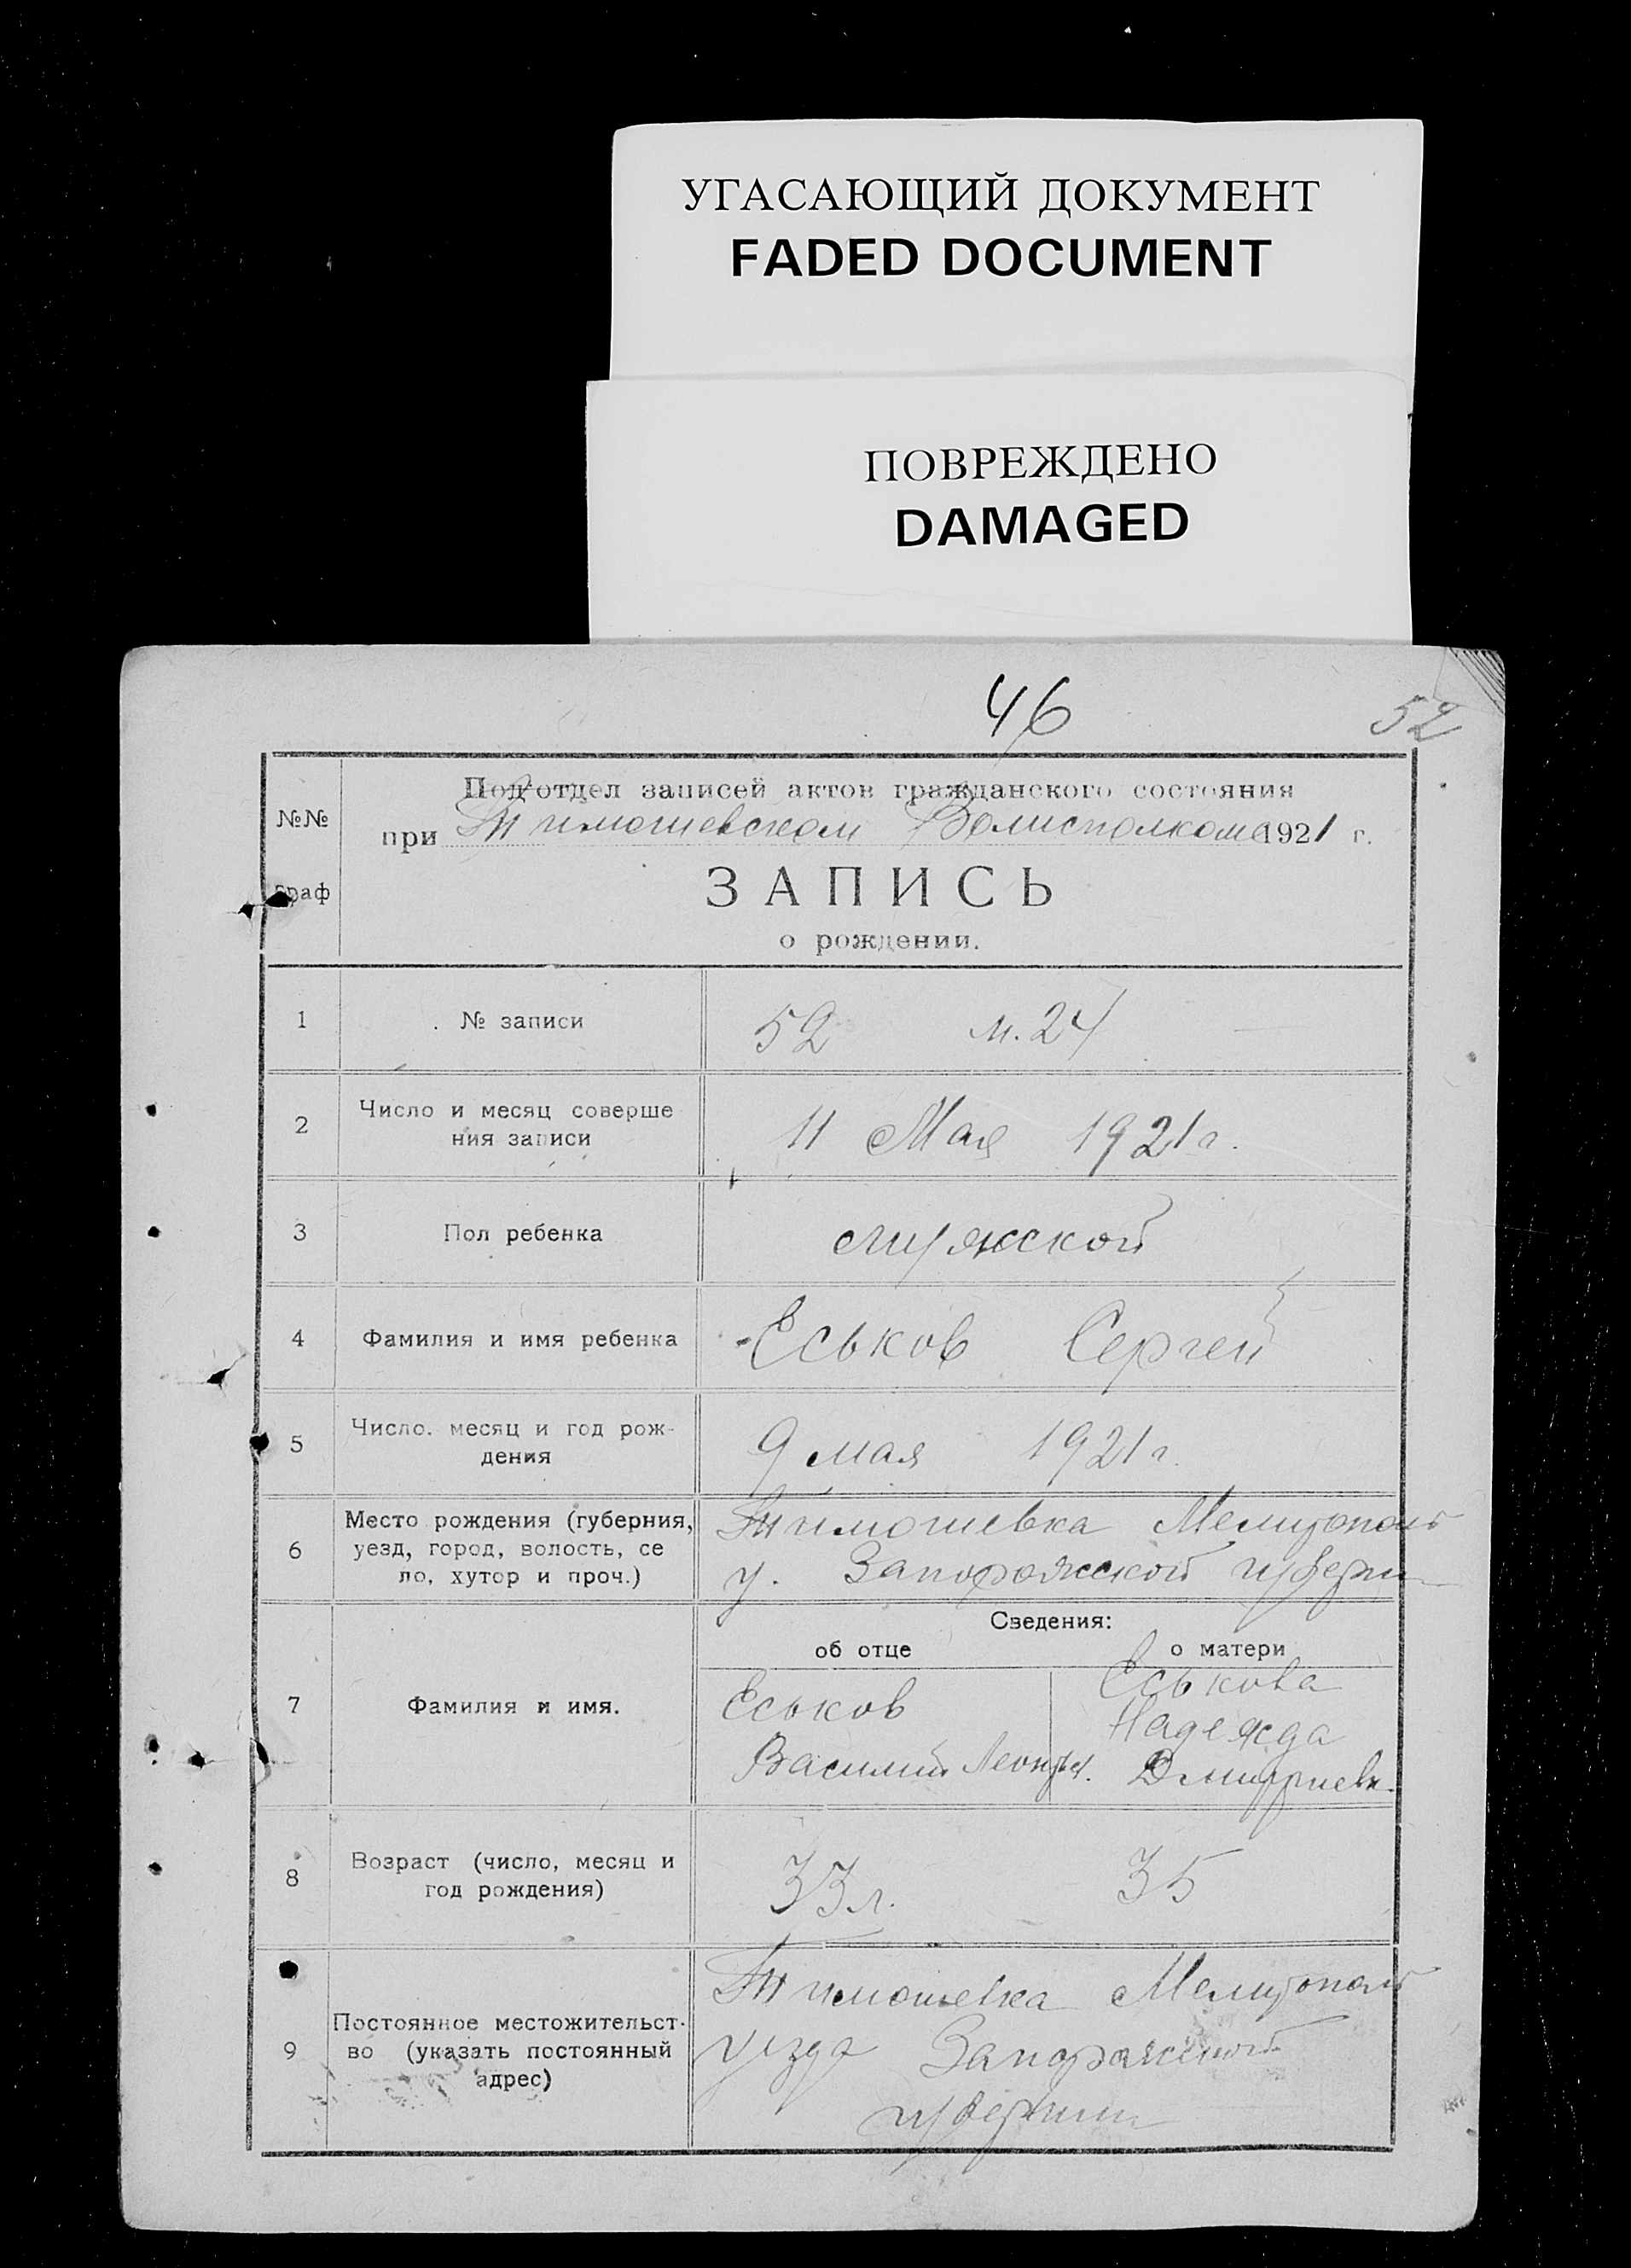 УГАСАЮЩИЙ ДОКУМЕНТ
FADED DOCUMENT
ПОВРЕЖДЕНО
DAMAGED
46
52
№№
граф
Подотдел записей актов гражданского состояния
при Тимошевском Волисполкоме 1921 г.
ЗАПИСЬ
о рождении.
1 № записи 52 м. 24
2 Число и месяц соверше
ния записи 11 Мая 1921 г.
3 Пол ребенка мужской
4 Фамилия и имя ребенка Еськов Сергей
5 Число. месяц и год рож-
дения 9 мая 1921 г.
6 Место рождения (губерния,
уезд, город, волость, се
ло, хутор и проч.)
Тимошевка Мелитополь
у. Запорожской губерни
Сведения:
об отце о матери
7 Фамилия и имя.
Еськов
Василий Леонтьев.
Еськова
Надежда
Дмитриевн.
8 Возраст (число, месяц и
год рождения)
33 л. 35
9 Постоянное местожительст-
во (указать постоянный
адрес)
Тимошевка Мелитополь
уезда Запорожской
губернии